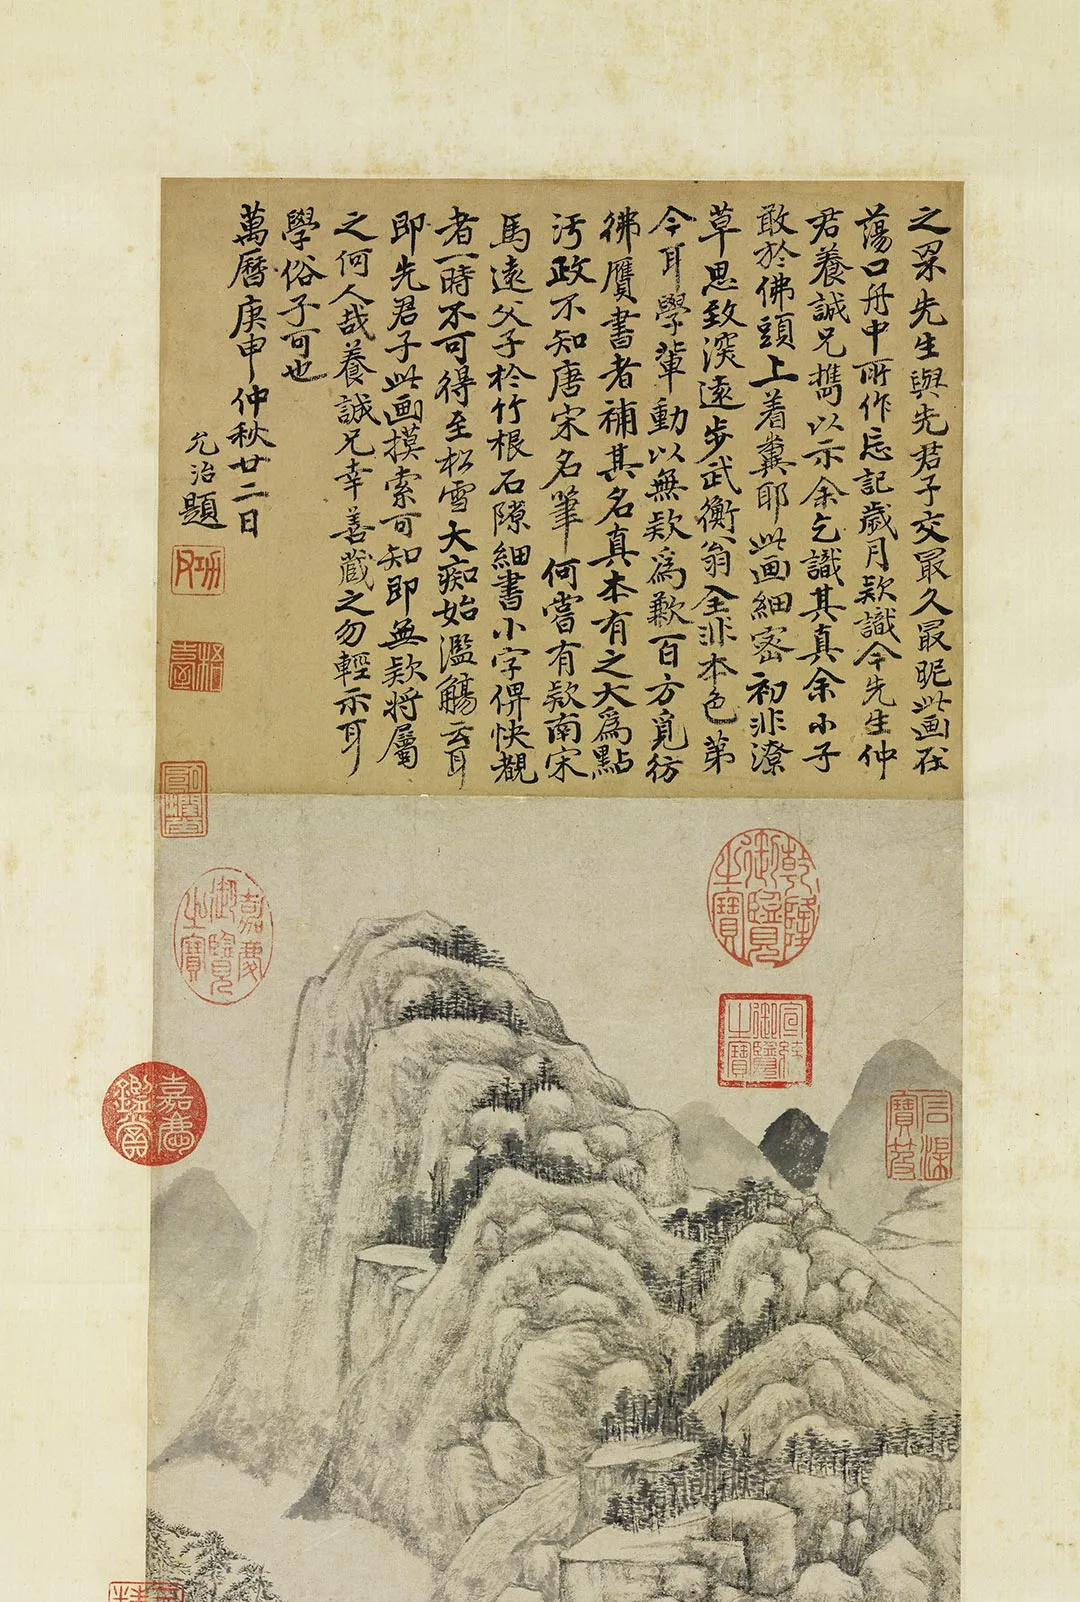 之罙先生與先君子交最久最昵此画在
蕩口舟中所作忘記歲月欵識今先生仲
君養誠兄攜以示余乞識其真余小子
敢於佛頭上着糞耶此画細密初非潦
草思致深遠步武衡翁全非本色第
今耳學輩動以無欵為歉百方覓彷
彿贋書者補其名真本有之大為點
汚政不知唐宋名筆何嘗有欵南宋
馬遠父子於竹根石隙細書小字俾快覩
者一時不可得至松雪大痴始濫觴云耳
即先君子此画摸索可知即無欵將屬
之何人哉養誠兄幸善藏之勿輕示耳
學俗子可也
萬曆庚申仲秋廿二日
允治題
乾隆御覽之寶
嘉慶御覽之寶
宣統御覽之寶
嘉慶鑑賞